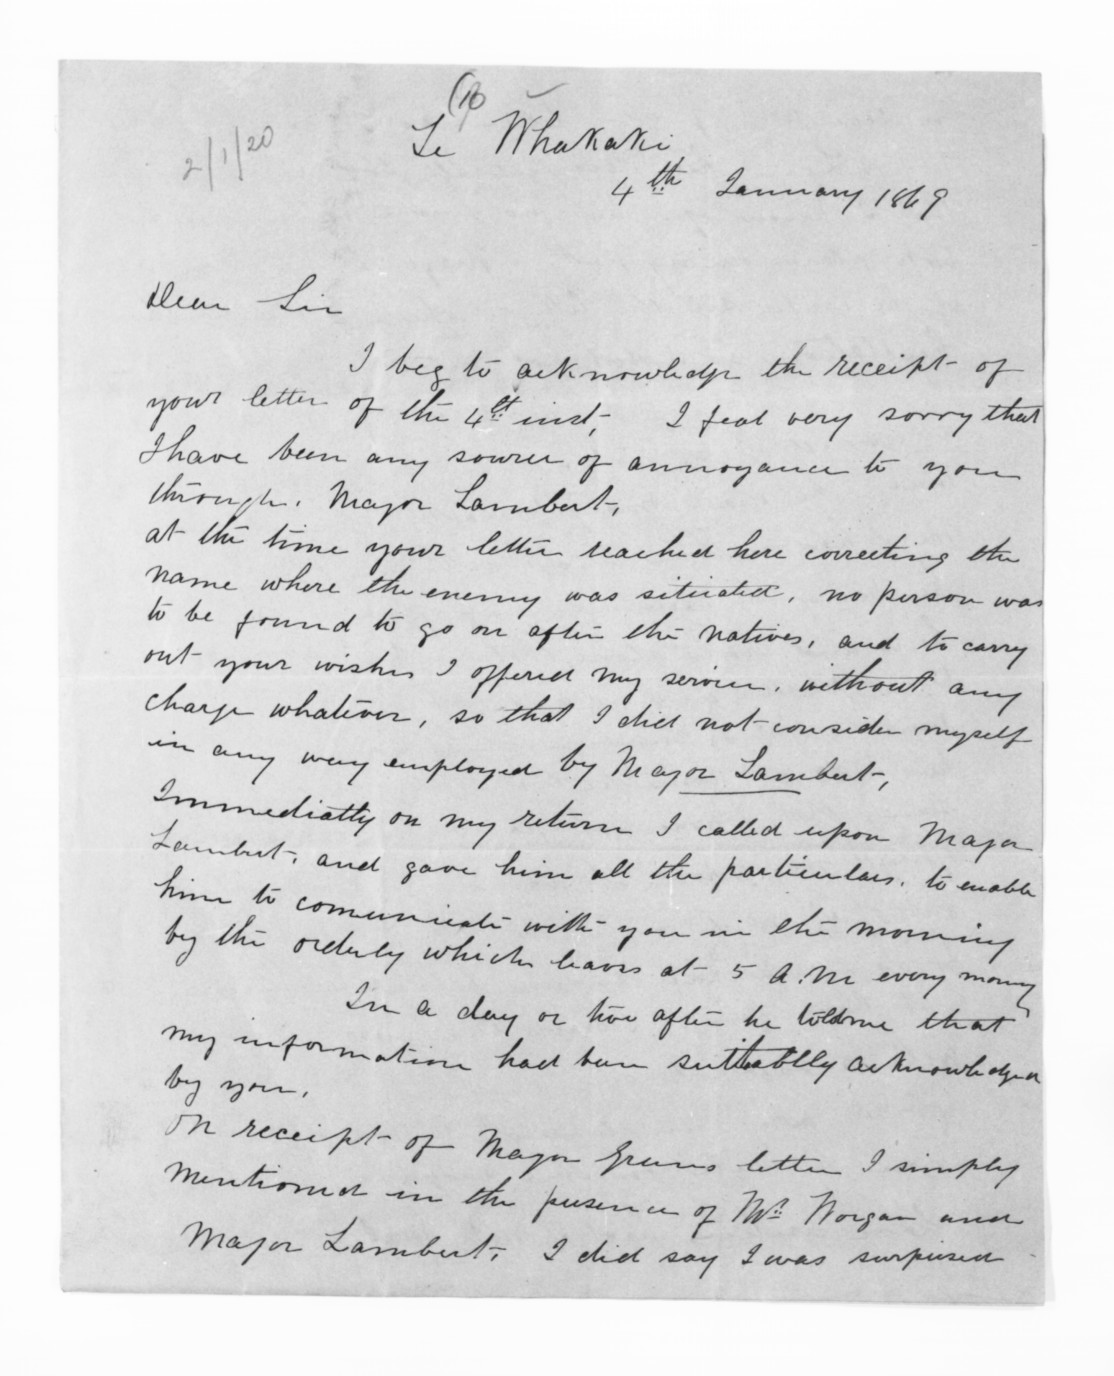 Te Whakaki
2/1/20
4th January 1869
Dear Sir
I beg to acknowledge the receipt of
your letter of the 4th inst, I feal very sorry that
I have been any source of annoyance to you
through, Major Lambert,
at the time your letter reached here correcting the
name where the enemy was situated, no person was
to be found to go on after the natives, and to carry
out your wishes I offered my service, without any
charge whatever, so that I did not consider myself
in any way employed by Major Lambert,
Immediatly on my return I called upon Major
Lambert, and gave him all the particulars, to enable
him to comunicate with you in the morning
by the orderly which leaves at 5 A.M every morning
In a day or two after he told me that
my information had been suitablly acknowledged
by you,
On receipt of Major Greens letter I simply
mentioned in the presence of Mr Worgan and
Major Lambert, I did say I was surprised